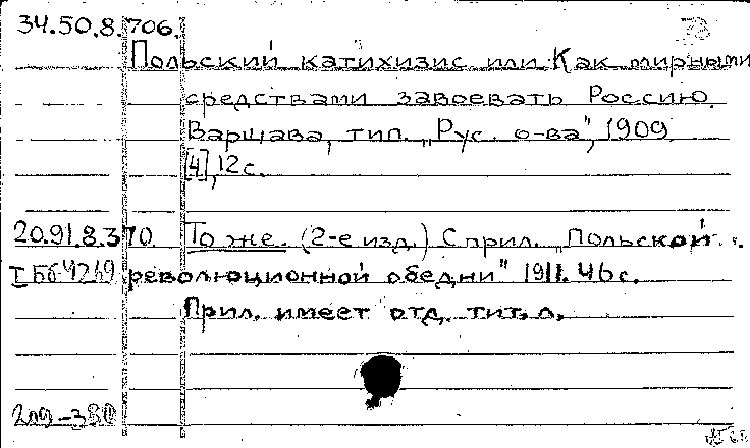 34.50.8.706. 73
Польский катихизис или Как мирными
средствами завоевать Россию.
Варшава, тип. „Рус. о-ва", 1909
[4], 12 с.
20.91.8.370 То же. (2-е изд.) С прил. „Польской
революционной обедни" 1911. 46 с.
Прил. имеет отд. тит. л.
209-380